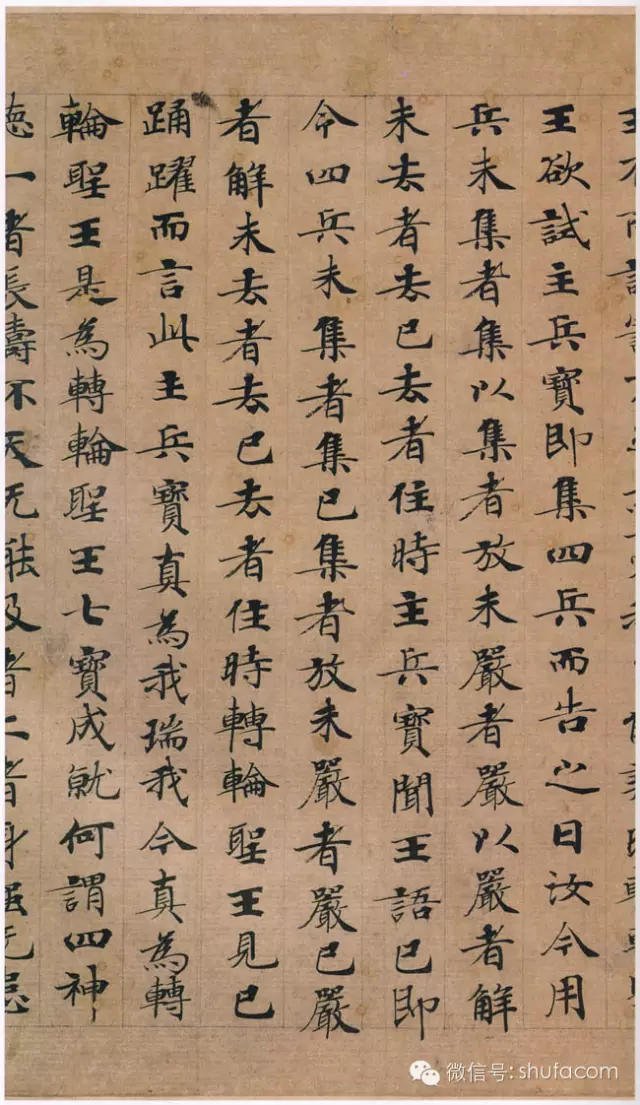 王欲試主兵寶即集四兵而告之曰汝今用
兵未集者集以集者放未嚴者嚴以嚴者解
未去者去已去者住時主兵寶聞王語已即
令四兵未集者集已集者放未嚴者嚴已嚴
者解未去者去已去者住時轉輪聖王見已
踊躍而言此主兵寶真為我瑞我今真為轉
輪聖王是為轉輪聖王七寶成就何謂四神
德一者長壽不夭无能及者二者身强无患
微信号: shufacom